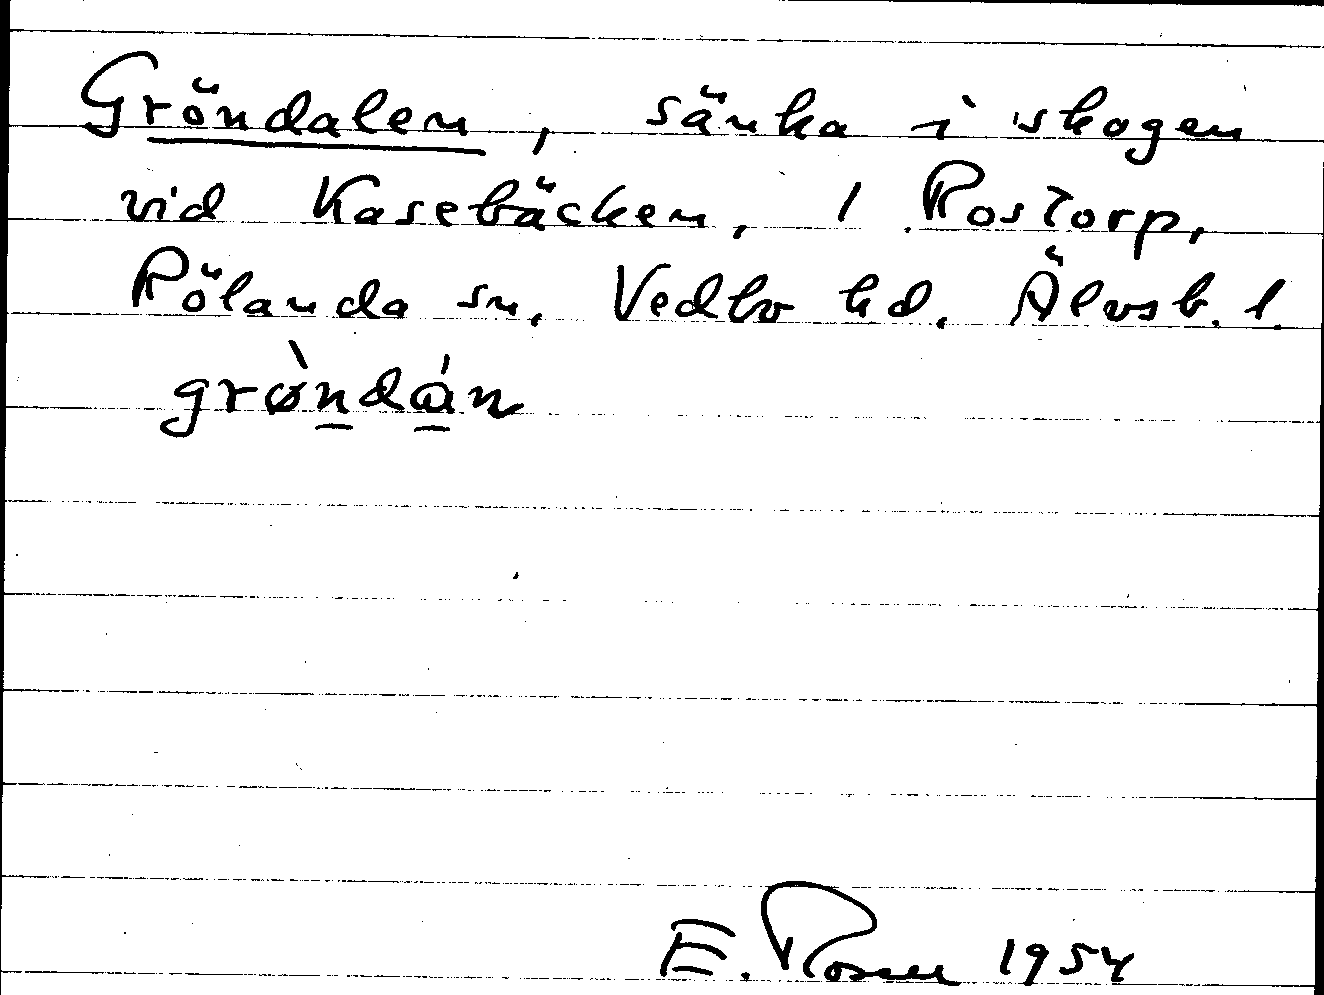 Gröndalen, sänka i skogen
vid Kasebäcken, 1 Rostorp,
Rölanda sn, Vedbo hd. Älvsb. l.
grø̀ndán
E. Rosell 1954